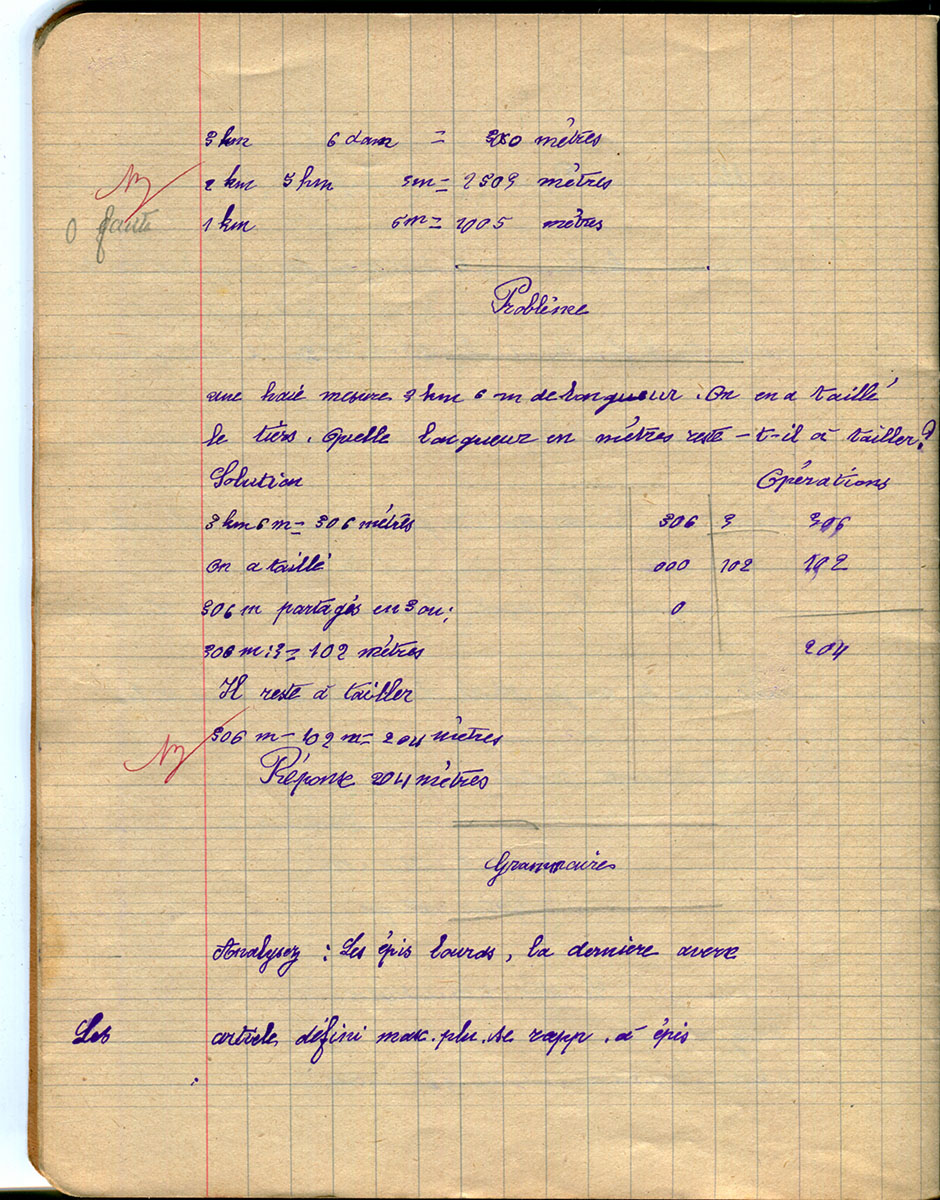 3 hm 6 dam = 360 mètres
2 km 5 hm 3m = 2503 mètres
1 km 5m = 1005 mètres
0 faute
Problème
une haie mesure 3 hm 6 m de longueur. On en a taillé
le tiers. Quelle longueur en mètres reste-t-il à tailler?
Solution Opérations
3 hm 6 m = 306 mètres 306 3 306
On a taillé 000 102 102
306 m partagés en 3 ou: 0
306 m : 3 = 102 mètres 204
Il reste à tailler
306 m - 102 m = 204 mètres
Réponse 204 mètres
Grammaire
Analysez : Les épis lourds, la dernière averse
Les article défini mas. plu. se rapp. à épis